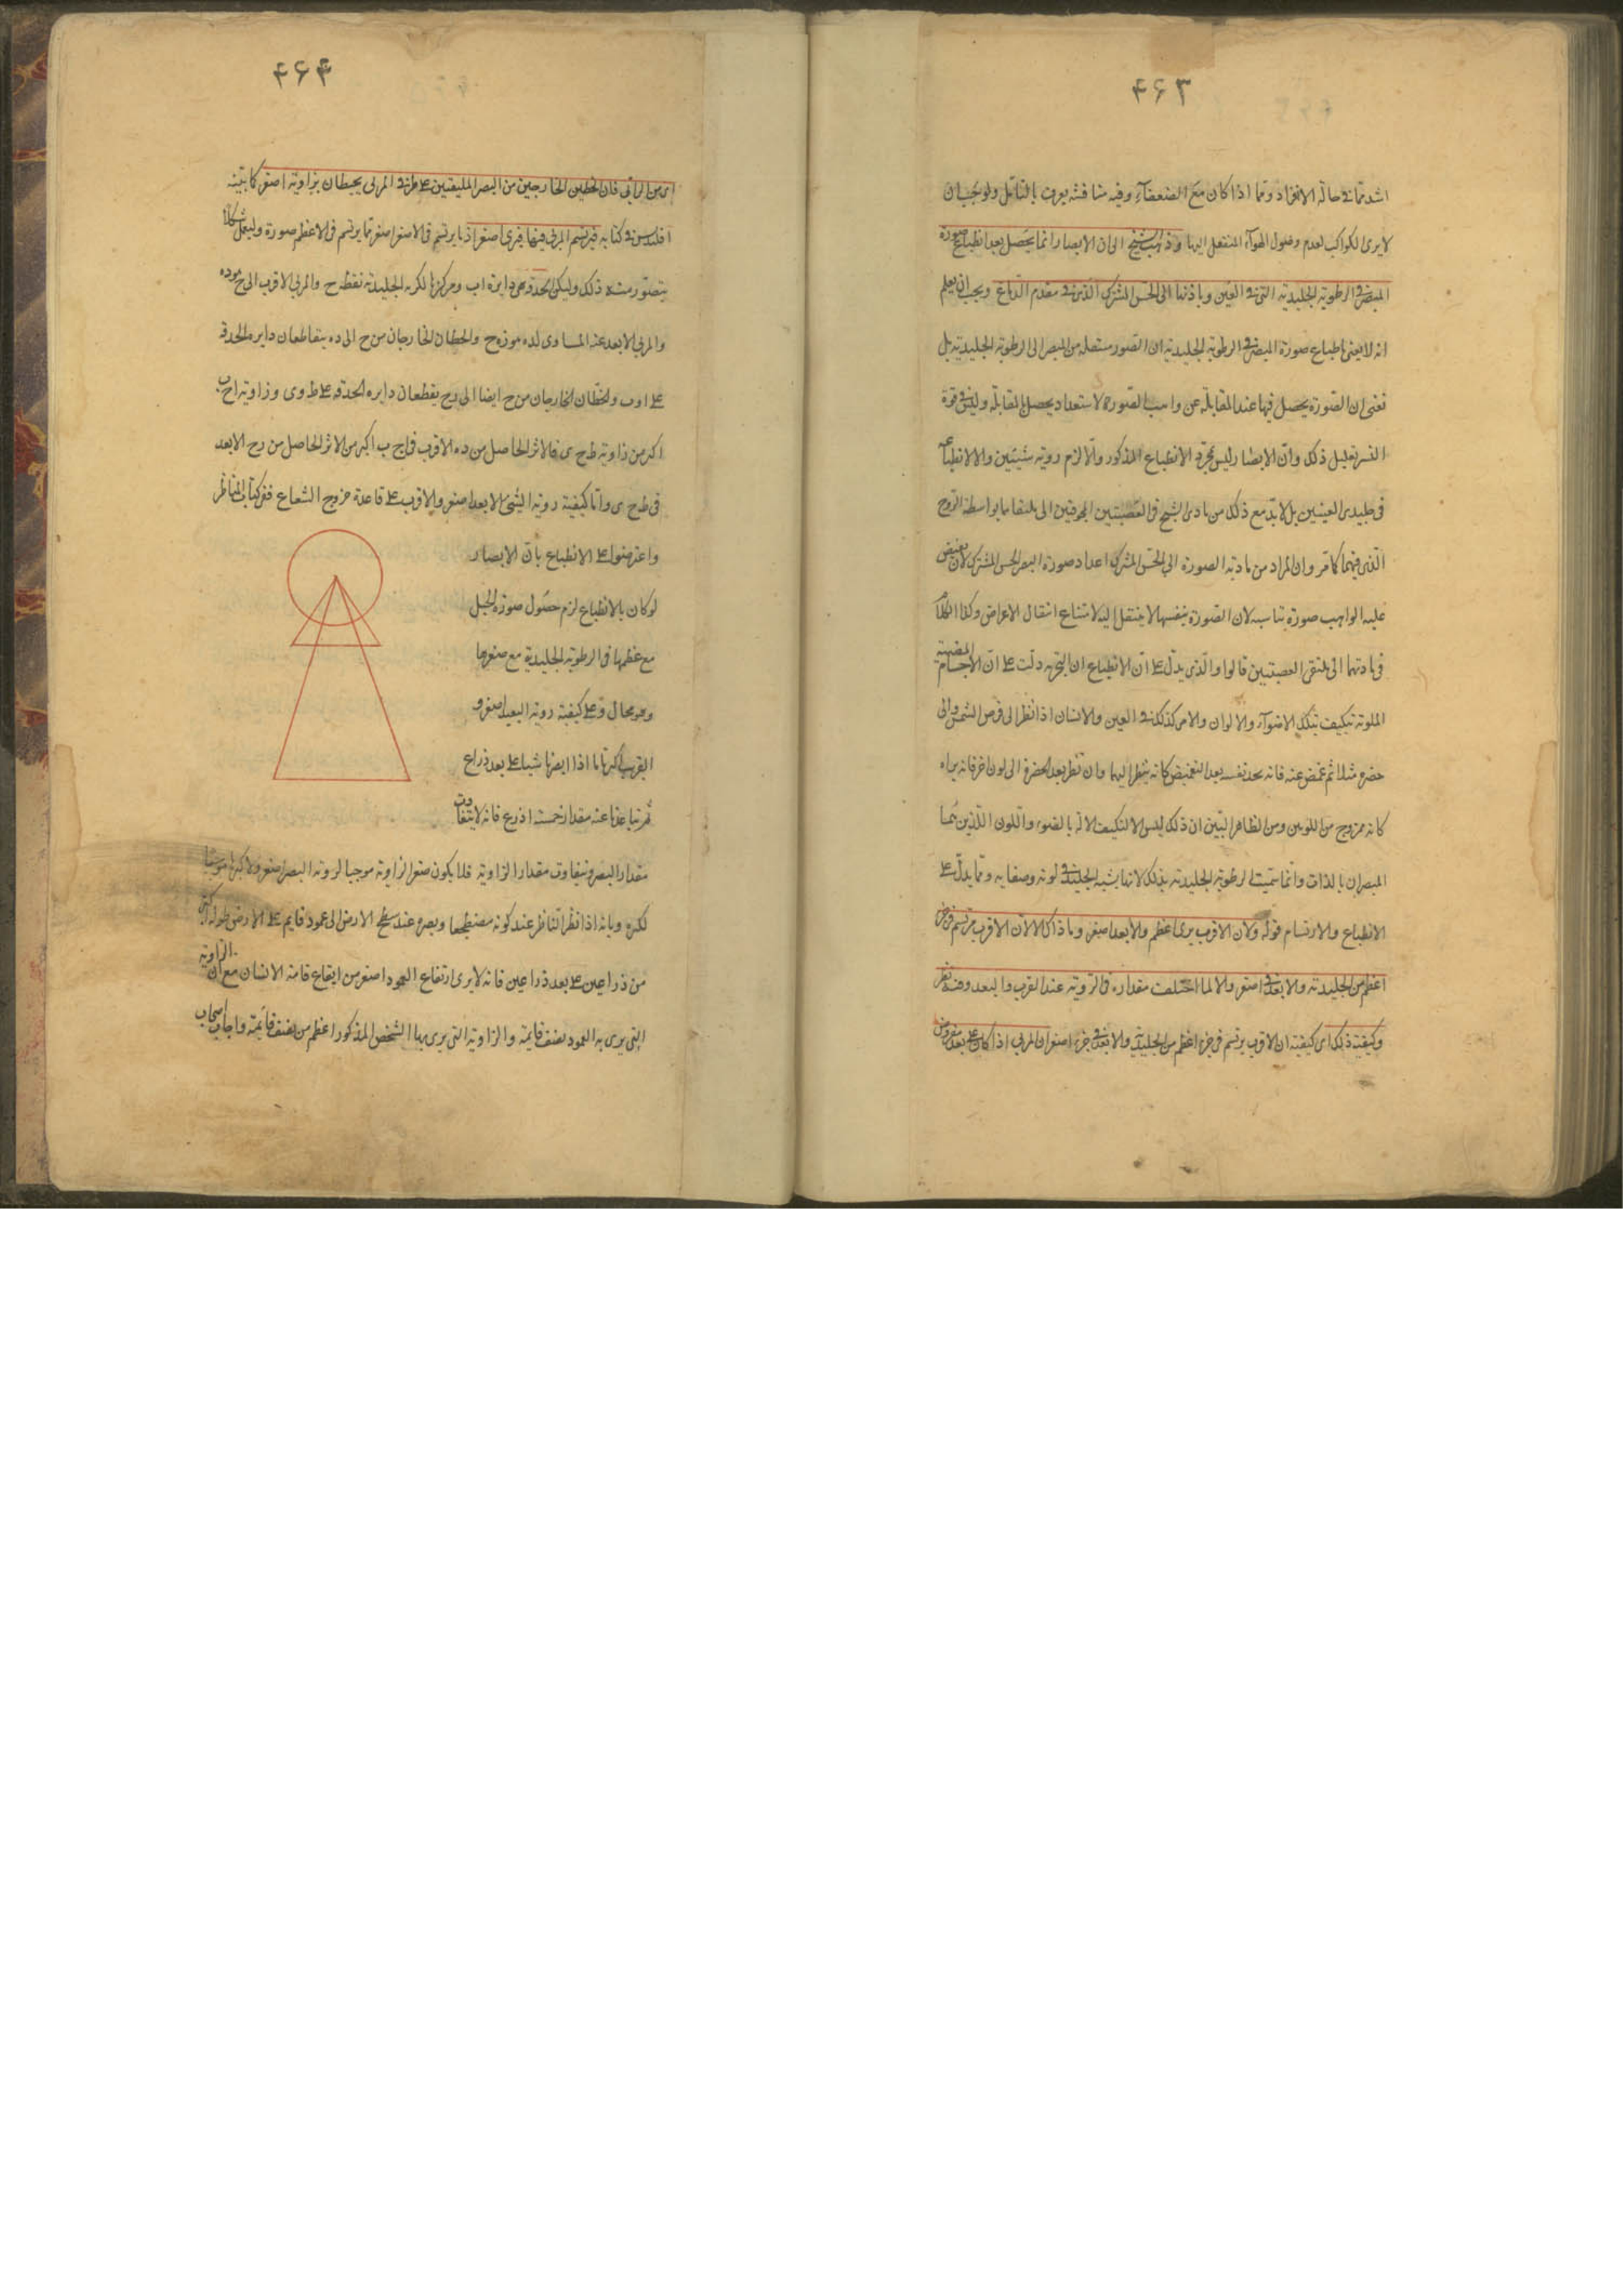 ۴۶۳
اشد مما فی حالة الانفراد وتما اذا کان مع الضعفآء وفیه مناقشة یعرف بالتأمل ولوجب ان
لایری الکواکب لعدم وصول الهوآء المنفعل الیها وذهب الشیخ الی ان الابصار انما یحصل بعد انطباع صورة
المبصر فی الرطوبة الجلیدیة التی فی العین وباذنها الی الحس المشترک الذی فی مقدم الدماغ ویجب ان یعلم
انه لایعنی بانطباع صورة المبصر فی الرطوبة الجلیدیة ان الصور منتقلة من المبصر الی الرطوبة الجلیدیة بل
نعنی ان الصورة یحصل فیها عند المقابلة عن واهب الصور لاستعداد یحصل بالمقابلة ولیس فی قوة
البشر تعلیل ذلک وان الابصار لیس بمجرد الانطباع المذکور والا لزم رویة شیئین والا لانطباعه
فی جلیدی العینین بل لابد مع ذلک من تادی الشبح فی العصبتین المجوفتین الی ملتقاهما بواسطة الروح
الذی فیهما کما مر وان المراد من تادیة الصورة الی الحس المشترک اعداد صورة البصر الحس المشترک لان یفیض
علیه الواهب صورة تناسبه لان الصورة بنفسها لا ینتقل الیه لامتناع انتقال الاعراض وکذا الکلام
فی تادیتهما الی ملتقی العصبتین قالوا والذی یدل علی ان الانطباع ان التجربة دلت علی ان الاجسام المضیئة
الملونة تیکیف بتلک الاضوآء والالوان والامر کذلک فی العین والانسان اذا نظر الی قرص الشمس والی
خضرة مثلا ثم غمض عنه فانه یجد نفسه بعد التغمیض کانه ینظر الیها وان نظر بعد الخضرة الی لون اخر فانه یراه
کانه ممزوج من اللونین ومن الظاهر البین ان ذلک لیس الا لتکیف الالة بالضوء واللون اللذین هما
المبصران بالذات وانما سمیت الرطوبة الجلیدیة بذلک لانها یشبه الجلید فی لونه وصفایه ومما یدل علی
الانطباع والارتسام قوله ولان الاقرب یری اعظم والابعد اصغر وما ذاک الا لان الاقرب یرتسم فی جزء
اعظم من الجلیدیة والابعد فی اصغر والا لما اختلف مقداره فی الرویة عند القرب والبعد وفیه نظر
وکیفیة ذلک ای کیفیة ان الاقرب یرتسم فی جزء اعظم من الجلیدیة والابعد فی جزء اصغر ان المرئی اذا کان علی بعد مفروض
۴۶۴
ای من الرائی فان الخطین الخارجین من البصر الملتقیین علی طرفی المرئی یحیطان بزاویة اصغر کما بینه
اقلیدس فی کتابه فیرتسم المرئی فیها فیری اصغر اذ ما یرتسم فی الاصغر اصغر مما یرتسم فی الاعظم صورة ولیعمل شکلا
یتصور منه ذلک ولیکن الحدقة هی دایرة اب ومرکزها لکرة الجلیدیة نقطة ح والمرئی الاقرب الی ح هو ده
والمرئی الابعد عنه المساوی لده هو زه ح والخطان الخارجان من ح الی ده یتقاطعان دایرة الحدقة
علی اوب والخطان الخارجان من ح ایضا الی رح یقطعان دایرة الحدقة علی ط وی وزاویة اح ب
اکبر من زاویة ط ح ی فالاثر الحاصل من ده الاقرب فی اح ب اکبر من الاثر الحاصل من رح الابعد
فی ط ح ی واما کیفیة رویة الشئ الابعد اصغر والاقرب علی قاعدة خروج الشعاع ففی کتاب المناظر
واعترضوا علی الانطباع بان الابصار
لو کان بالانطباع لزم حصول صورة الجبل
مع عظمها فی الرطوبة الجلیدیة مع صغرها
وهو محال وعلی کیفیة رویة البعید اصغر و
القریب اکبر بانا اذا ابصرنا شیئا علی بعد ذراع
ثم تباعدنا عنه مقدار خمسة اذرع فانه لا یتفاوت
مقدار المبصر وتفاوت مقدار الزاویة فلا یکون صغر الزاویة موجبا لرویة المبصر اصغر ولا کبرها موجبا
لکبره وبانه اذا نظر الناظر عند کونه مضطجعا وبصره عند سطح الارض الی عمود قایم علی الارض طوله اکثر
من ذراعین علی بعد ذراعین فانه لایری ارتفاع العمود اصغر من ارتفاع قامة الانسان مع ان الزاویة
التی یری به العمود نصف قایمة والزاویة التی یری بها الشخص المذکور اعظم من نصف قایمة واجاب اصحاب